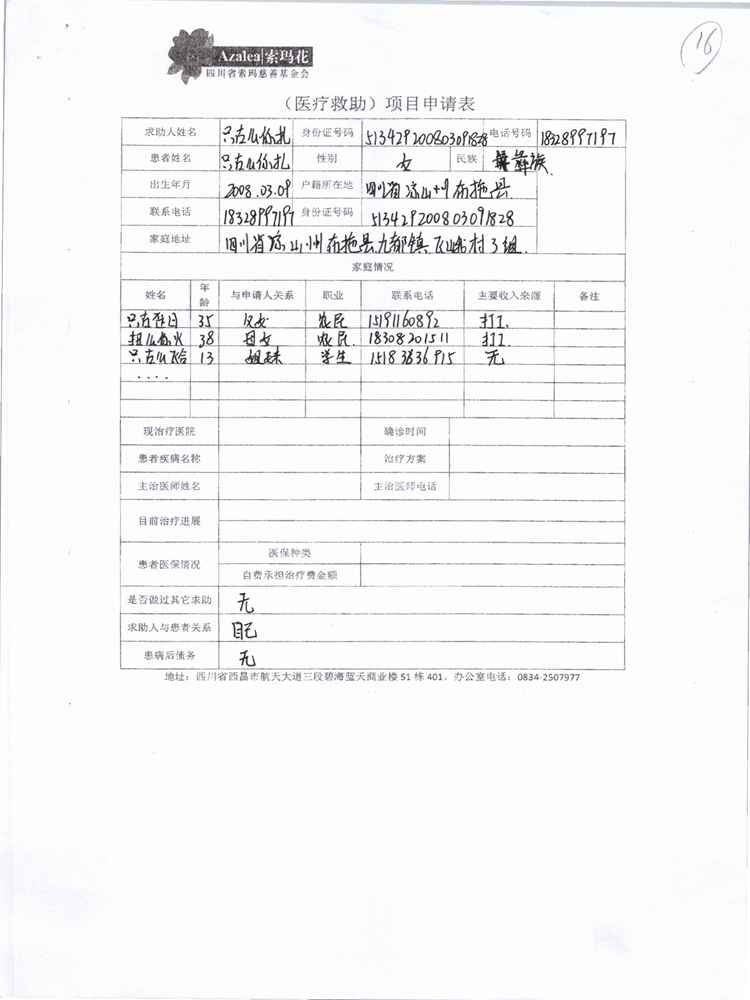 16
Azalea|索玛花
四川省索玛慈善基金会
（医疗救助）项目申请表
求助人姓名 只古么你扎 身份证号码 513429200803091828 电话号码 18328997197
患者姓名 只古么你扎 性别 女 民族 彝族
出生年月 2008.03.09 户籍所在地 四川省凉山州布拖县
联系电话 18328997197 身份证号码 513429200803091828
家庭地址 四川省凉山州布拖县九都镇 村3组
家庭情况
姓名 年龄 与申请人关系 职业 联系电话 主要收入来源 备注
只古 日 35 父女 农民 15191160892 打工
么你火 38 母女 农民 18308201511 打工
只古么 13 姐妹 学生 15183636915 无
....
现治疗医院 确诊时间
患者疾病名称 治疗方案
主治医师姓名 主治医师电话
目前治疗进展
患者医保情况 医保种类
自费承担治疗费金额
是否做过其它求助 无
求助人与患者关系 自己
患病后债务 无
地址：四川省西昌市航天大道三段碧海蓝天商业楼 S1 栋 401。办公室电话：0834-2507977